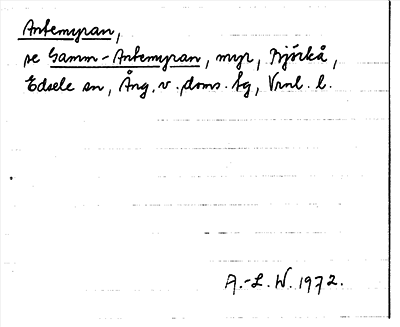 Antemyran,
se Gamm-Antemyran, myr, Björkå,
Edsele sn, Ång. v. doms. tg, Vrnl. l.
A.-L. W. 1972.